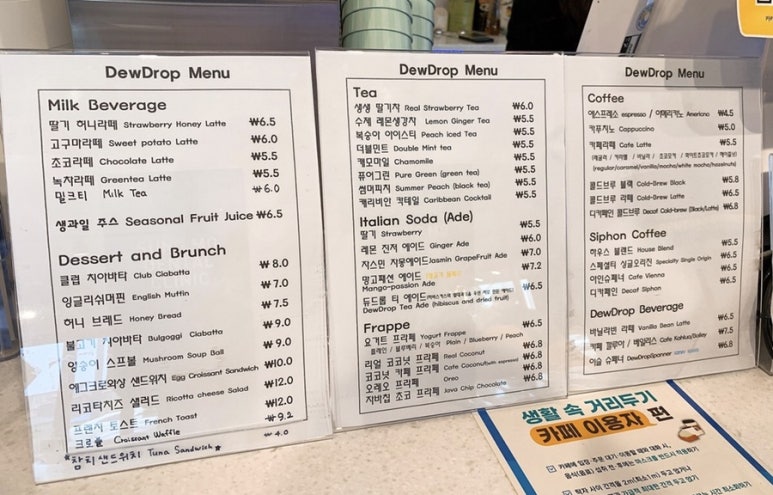 DewDrop Menu
Milk Beverage
딸기 허니라떼 Strawberry Honey Latte ₩6.5
고구마라떼 Sweet potato Latte ₩6.0
초코라떼 Chocolate Latte ₩5.5
녹차라떼 Greentea Latte ₩5.5
밀크티 Milk Tea ₩6.0
생과일 주스 Seasonal Fruit Juice ₩6.5
Dessert and Brunch
클럽 치아바타 Club Ciabatta ₩8.0
잉글리쉬머핀 English Muffin ₩7.0
허니 브레드 Honey Bread ₩7.5
불고기 치아바타 Bulgoggi Ciabatta ₩9.0
양송이 스프볼 Mushroom Soup Ball ₩9.0
에그크로와상 샌드위치 Egg Croissant Sandwich ₩10.0
리코타치즈 샐러드 Ricotta cheese Salad ₩12.0
프렌치 토스트 French Toast ₩12.0
크로플 Croissant Waffle ₩9.2
*참치샌드위치 Tuna Sandwich* ₩4.0
DewDrop Menu
Tea
생생 딸기차 Real Strawberry Tea ₩6.0
수제 레몬생강차 Lemon Ginger Tea ₩5.5
복숭아 아이스티 Peach iced Tea ₩5.5
더블민트 Double Mint tea ₩5.5
캐모마일 Chamomile ₩5.5
퓨어그린 Pure Green (green tea) ₩5.5
썸머피치 Summer Peach (black tea) ₩5.5
캐리비안 칵테일 Caribbean Cocktail ₩5.5
Italian Soda (Ade)
딸기 Strawberry ₩5.5
레몬 진저 에이드 Ginger Ade ₩6.0
자스민 자몽에이드 Jasmin GrapeFruit Ade ₩7.0
망고패션 에이드 ₩7.2
Mango-passion Ade
듀드롭 티 에이드 ₩6.5
DewDrop Tea Ade (hibiscus and dried fruit)
Frappe
요거트 프라페 Yogurt Frappe ₩6.5
플레인 / 블루베리 / 복숭아 Plain / Blueberry / Peach
리얼 코코넛 프라페 Real Coconut ₩6.8
코코넛 카페 프라페 Cafe Coconut (with espresso) ₩6.8
오레오 프라페 Oreo ₩6.8
자바칩 초코 프라페 Java Chip Chocolate ₩6.8
DewDrop Menu
Coffee
에스프레소 espresso / 아메리카노 Americano ₩4.5
카푸치노 Cappuccino ₩5.0
카페라떼 Cafe Latte ₩5.5
(regular/caramel/vanilla/mocha/white mocha/hazelnuts)
콜드브루 블랙 Cold-Brew Black ₩5.8
콜드브루 라떼 Cold-Brew Latte ₩6.8
디카페인 콜드브루 Decaf Cold-brew (Black/Latte) ₩6.8
Siphon Coffee
하우스 블렌드 House Blend ₩5.5
스페셜티 싱글오리진 Specialty Single Origin ₩6.5
아인슈페너 Cafe Vienna ₩6.5
디카페인 Decaf Siphon ₩6.5
DewDrop Beverage
바닐라빈 라떼 Vanilla Bean Latte ₩6.5
카페 깔루아 / 베일리스 Cafe Kahlua/Bailey ₩7.5
이슬 슈페너 DewDropSpanner ₩6.8
생활 속 거리두기
카페 이용자 편